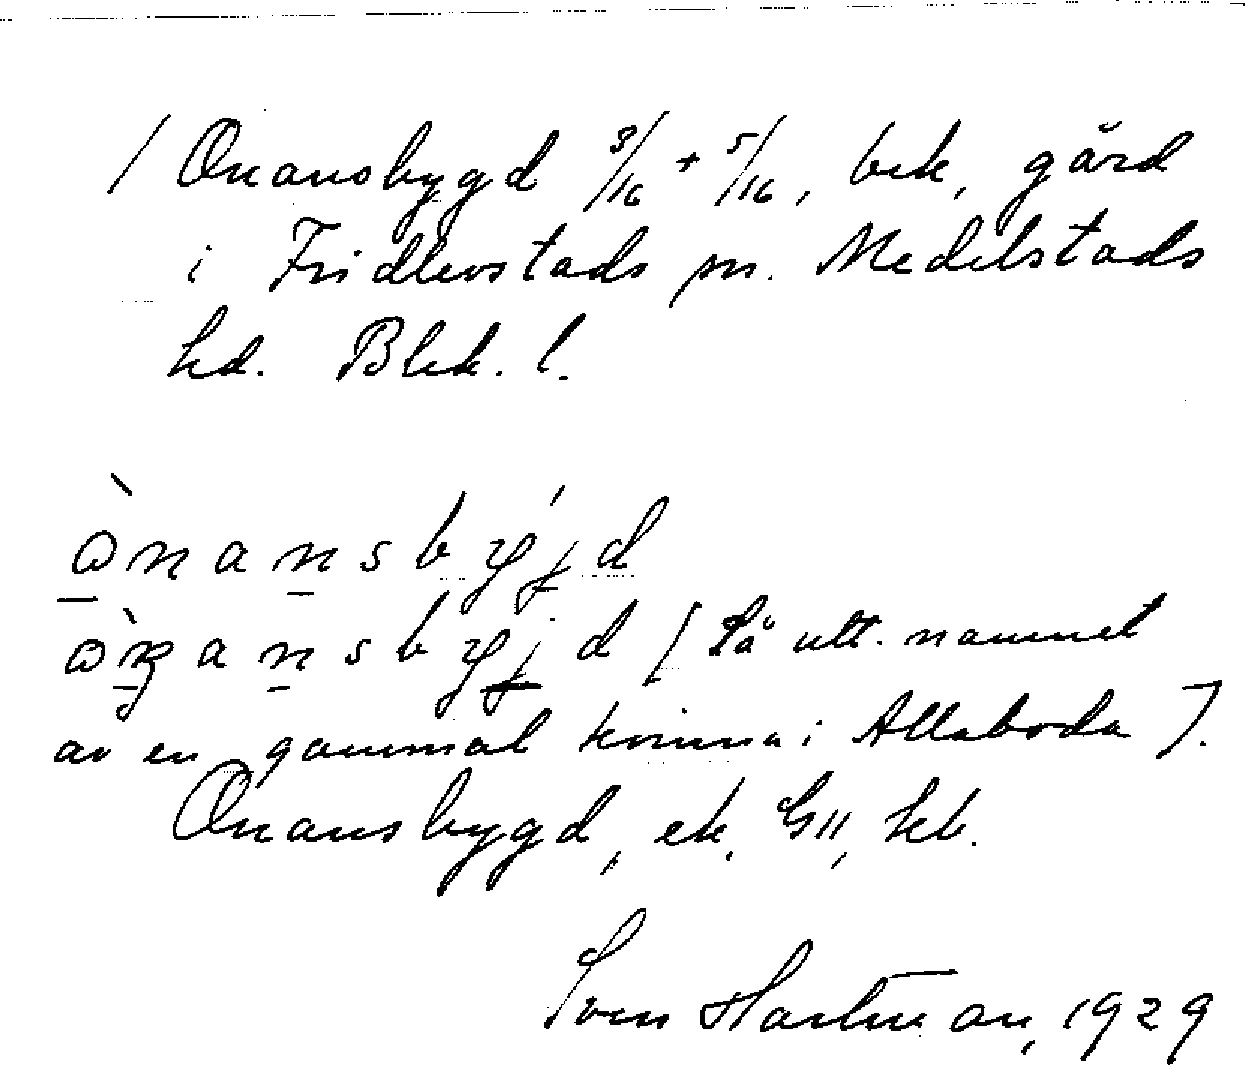 / Onansbygd 3/16 + 5/16, bek, gård
i Fridlevstads sn. Medelstads
hd. Blek. l.
ɷ̀nansbyjd
ɷ̀nansbyjd [Så utt. namnet
av en gammal kvinna i Allaboda].
Onansbygd, ek, GII, kb.
Sven Hartman, 1929